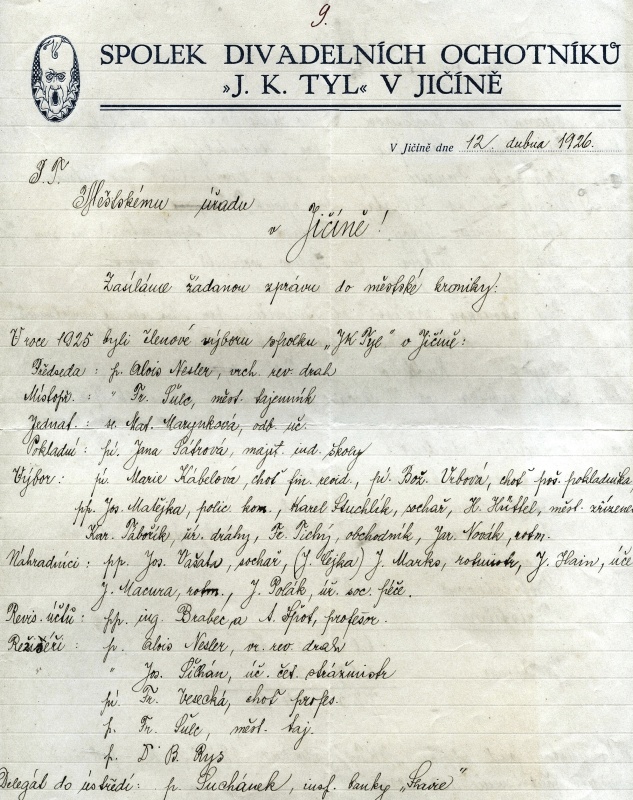 9.
SPOLEK DIVADELNÍCH OCHOTNÍKŮ
»J. K. TYL« V JIČÍNĚ
V Jičíně dne 12. dubna 1926.
T. T.
Městskému úřadu
v Jičíně!
Zasíláme žádanou zprávu do městské kroniky:
V roce 1925 byli členové výboru spolku „JK Tyl" v Jičíně:
Předseda: p. Alois Nesler, vrch. rev. drah
Místopř. " Fr. Šulc, měst. tajemník
Jednat.: sl. Mat. Marynková, odb. uč.
Pokladní: pí. Jana Pátrová, majit. ind. školy
Výbor: pí. Marie Kábelová, choť fin. revid., pí. Bož. Vrbová, choť poš. pokladníka
pp. Jos. Matejka, polic. kom., Karel Stuchlík, sochař, H. Hüttel, měst. zřízene
Kar. Táborik, úř. dráhy, Fr. Tichý, obchodník, Jar. Novák, rotm.
Náhradníci: pp. Jos. Vašata, sochař, (J. Čejka) J. Marks, rotmistr, J. Hain, úče
J. Macura, rotm., J. Polák, úř. soc. péče.
Revis. účtů: pp. ing. Brabec, a A. Špot, profesor.
Režiséři: p. Alois Nesler, vr. rev. drah
" Jos. Šilhán, úč. čet. strážmistr
pí. Fr. Veselá, choť profes.
p. Fr. Šulc, měst. taj.
p. Dr B. Rys
Delegát do ústředí: p. Suchánek, insp. banky „Slavie"